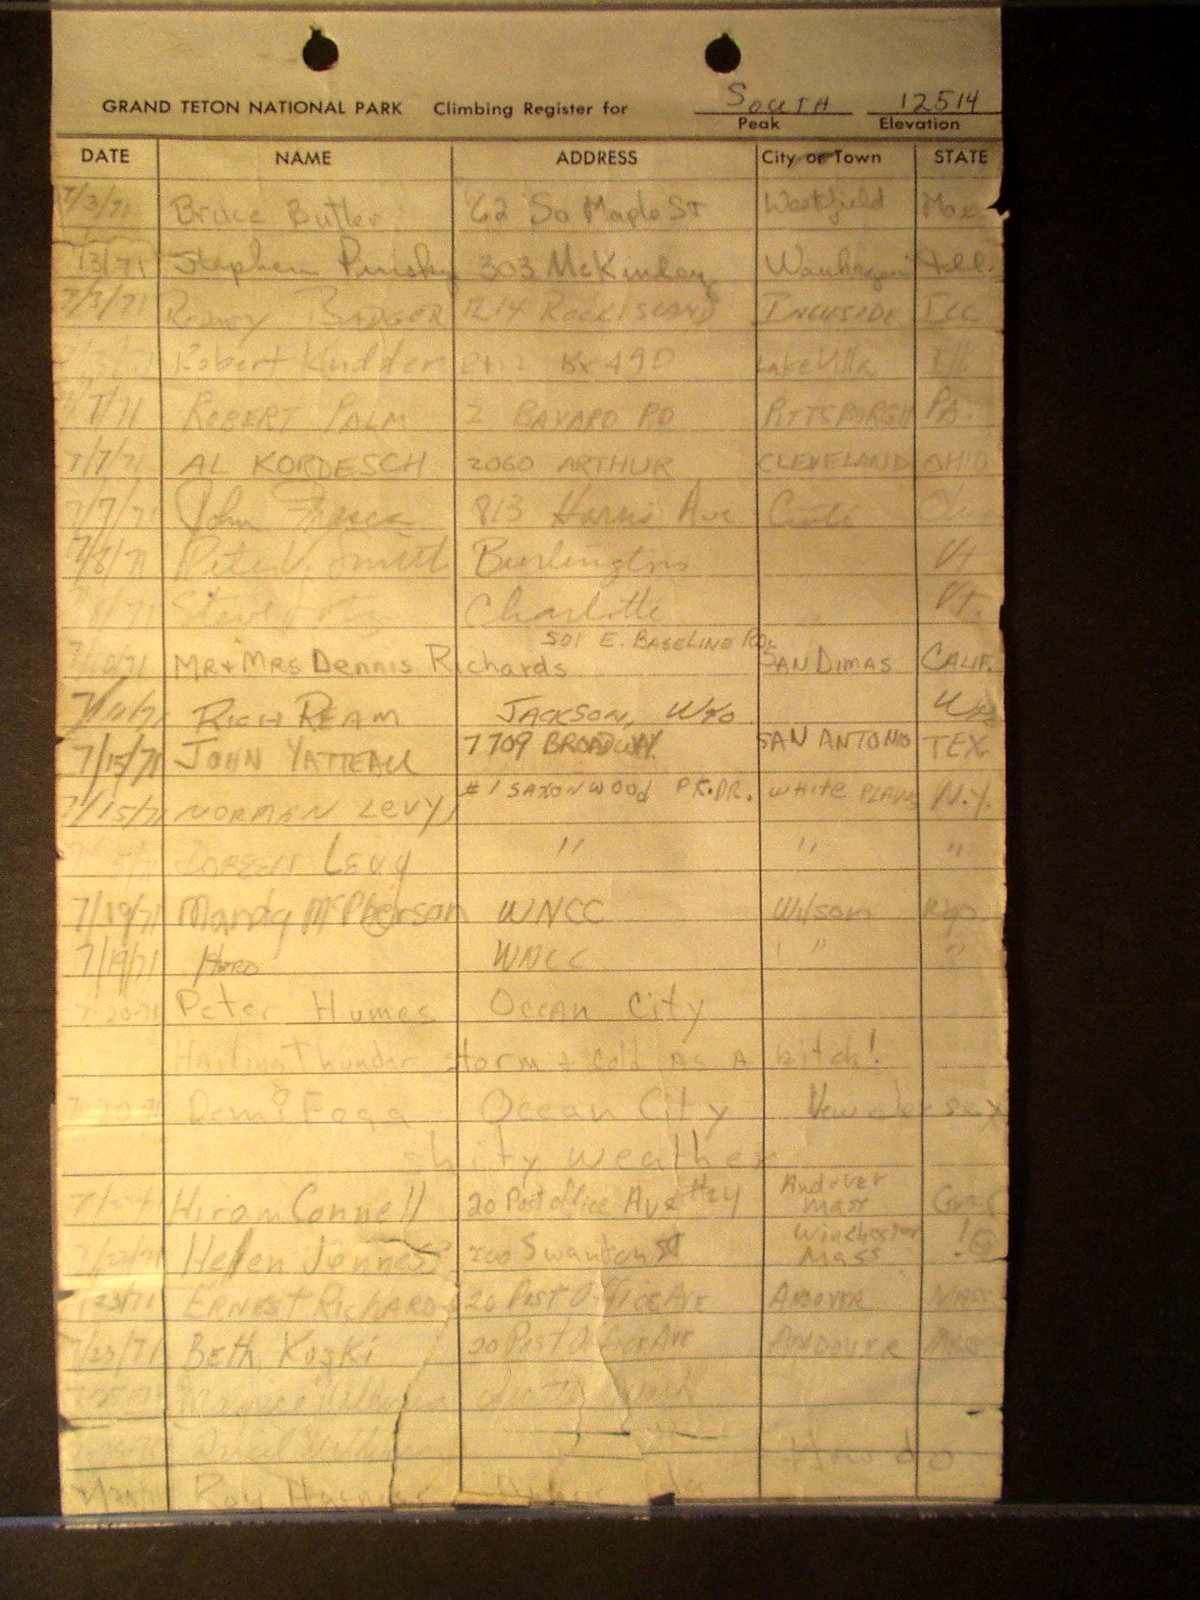 GRAND TETON NATIONAL PARK Climbing Register for SOUTH 12514
Peak Elevation
DATE NAME ADDRESS City or Town STATE
7/3/71 Bruce Butler 62 So Maple St Westfield
7/3/71 Stephen 303 McKinley Ill.
7/3/71 BADGER ROCK ISLAND INGLESIDE ILL
Robert Kudder Bx 49D Lake Villa Ill.
7/71 ROBERT PALM 2 BAYARD RD PITTSBURGH PA.
7/7/71 AL KORDESCH 2060 ARTHUR CLEVELAND OHIO
7/7/71 John 813 Harris Ave
7/8/71 Peter V. Smith Burlington Vt
8/71 Steve Charlotte Vt.
501 E. BASELINE RD.
7/10/71 MR & MRS Dennis Richards SAN DIMAS CALIF.
7/11/71 RICH REAM JACKSON, WYO Wyo
7/15/71 JOHN YATTEAU 7709 BROADWAY SAN ANTONIO TEX
7/15/71 NORMAN LEVY #1 SAXONWOOD PK. DR. WHITE PLAINS N.Y.
DOREEN LEVY " " "
7/19/71 Mandy McPherson WNCC Wilson Wyo
7/19/71 HERO WNCC " "
7-20-71 Peter Humes Ocean City
Hailing Thunder storm & cold as a bitch!
7-20-71 Fogg Ocean City New Jersey
shity weather
Hiram Connell 20 Post office Ave #24 Andover Mass
7/23/71 Helen Jenness 200 Swanton St Winchester Mass.
7/23/71 ERNEST RICHARD 20 POST OFFICE AVE ANDOVER MASS
7/23/71 BETH KOSKI 20 POST OFFICE AVE ANDOVER
Maurice
How do
Roy